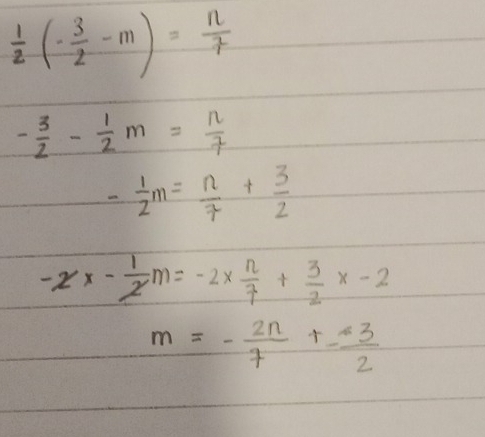 1/2 (-3/2 - m) = n/7
-3/2 - 1/2 m = n/7
- 1/2 m = n/7 + 3/2
-2 x - 1/2 m = -2 x n/7 + 3/2 x -2
m = - 2n/7 + -3/2